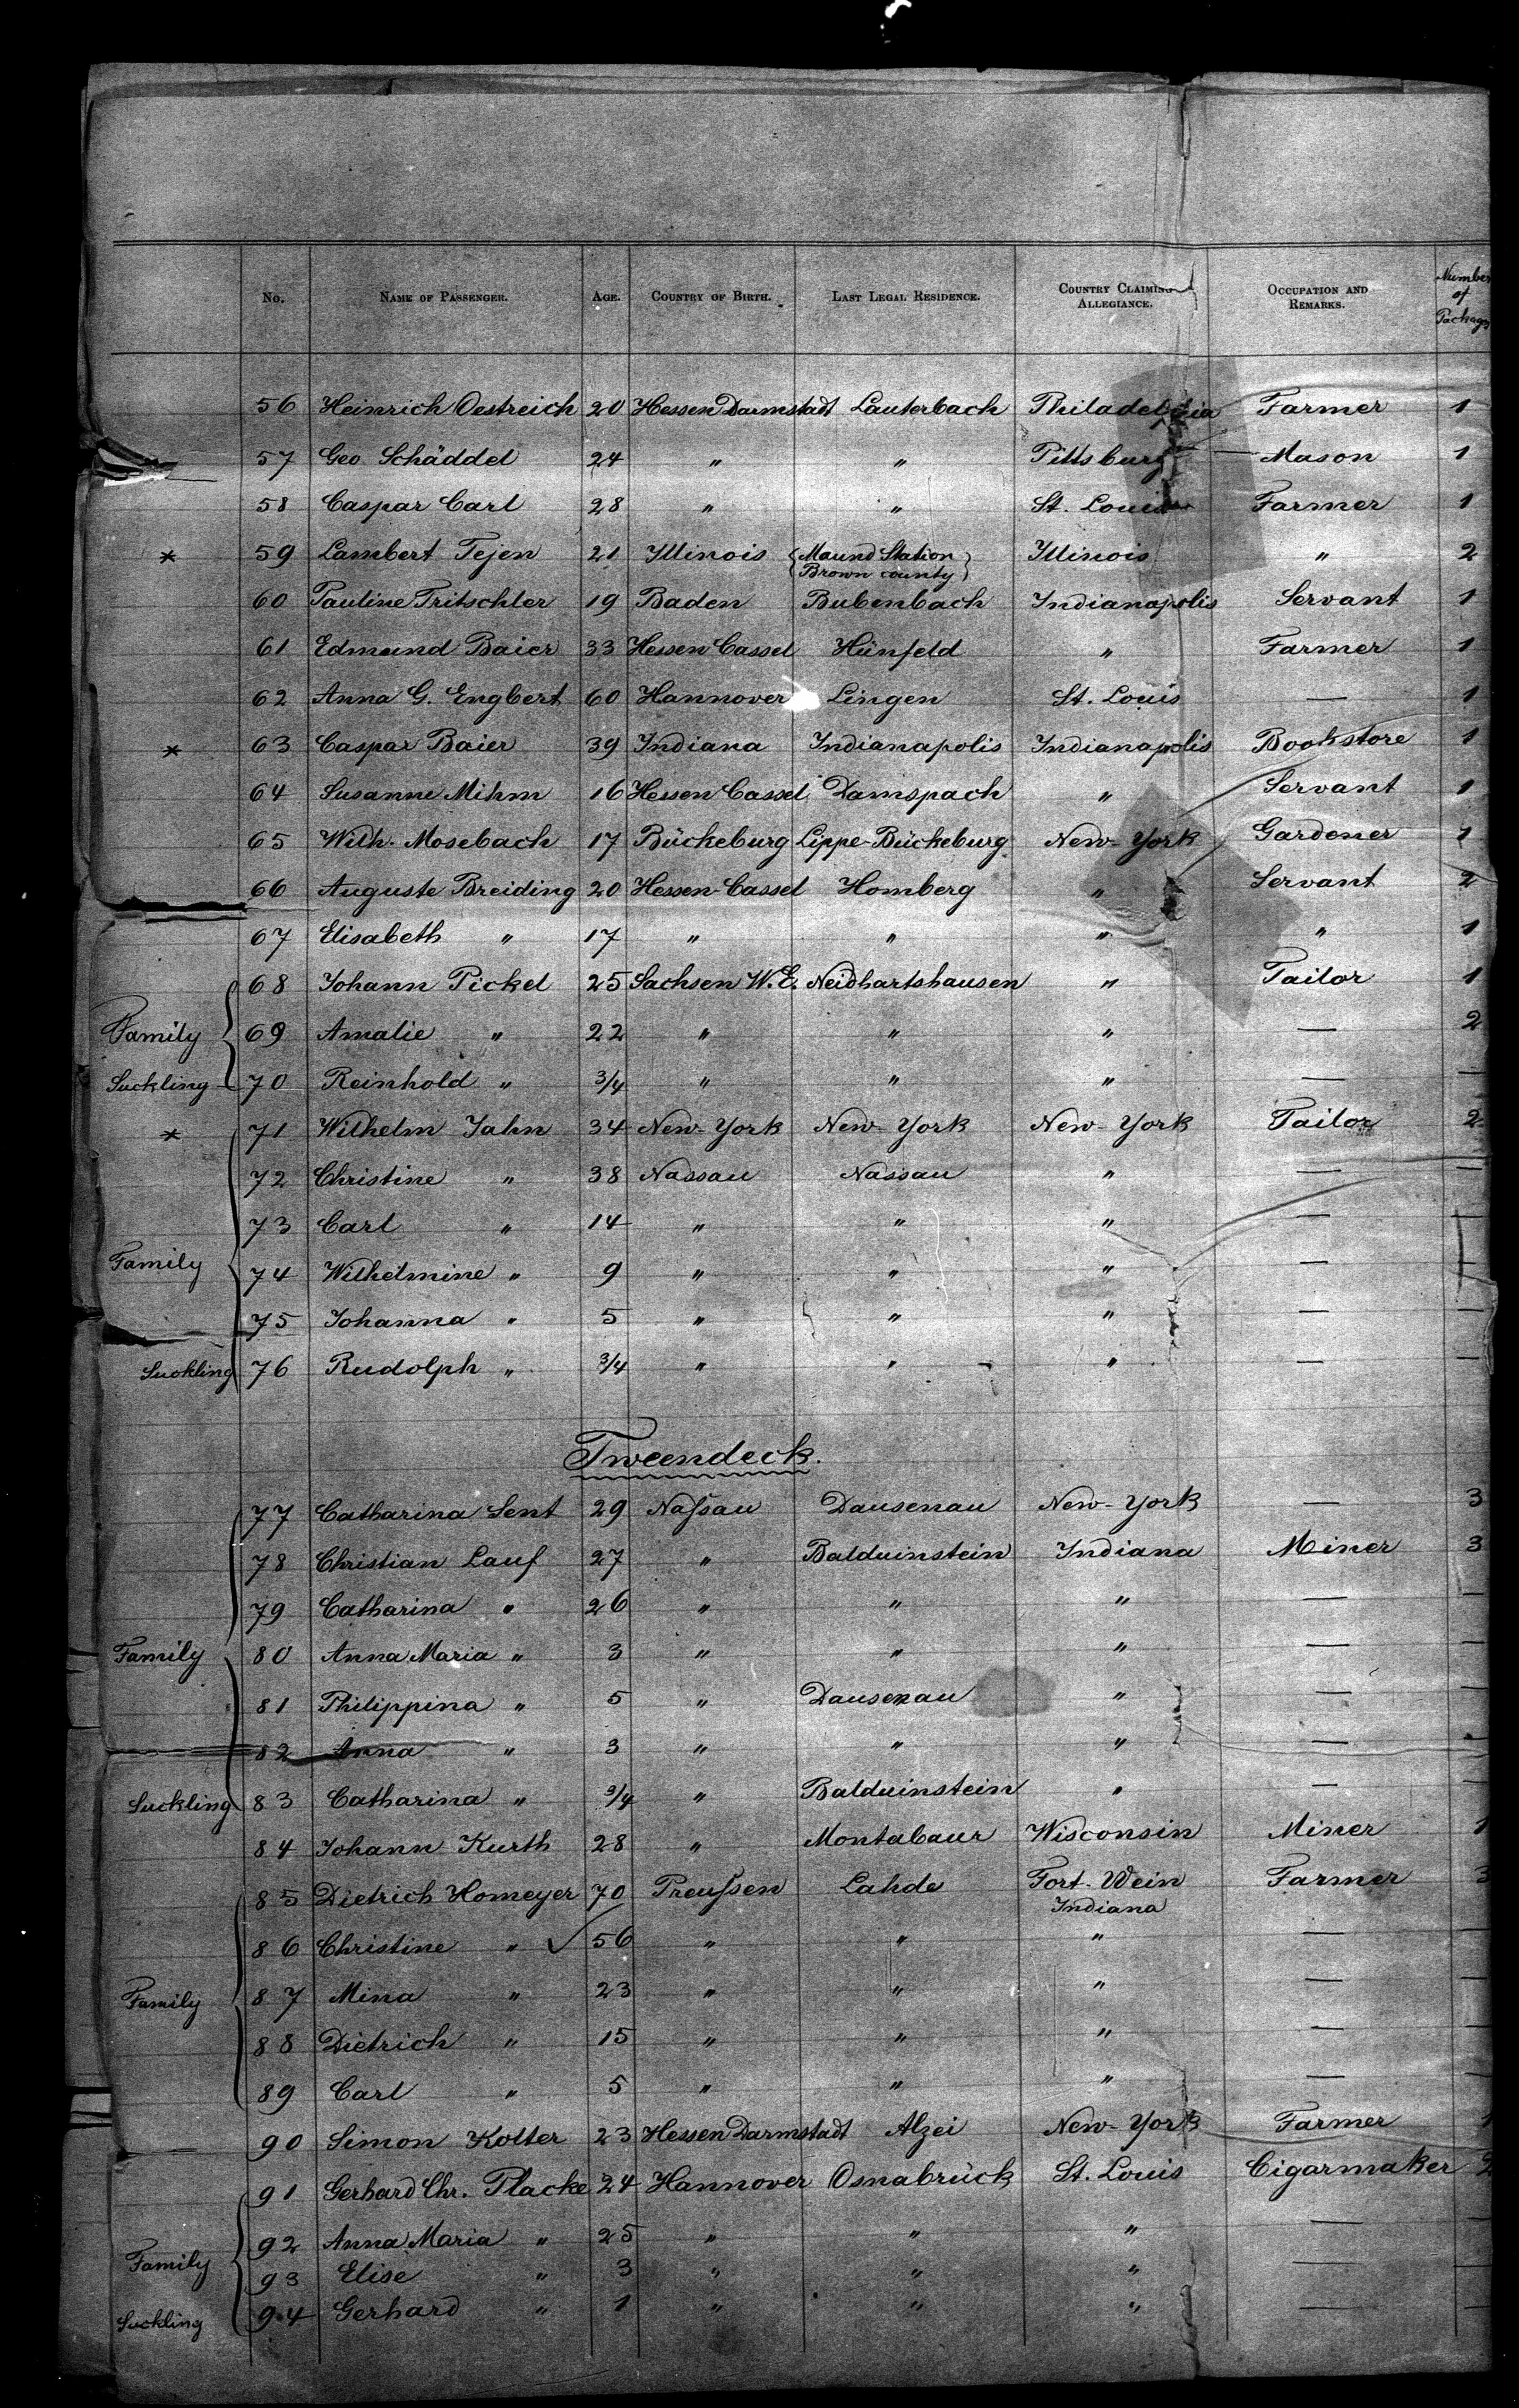 No. NAME OF PASSENGER. AGE. COUNTRY OF BIRTH. LAST LEGAL RESIDENCE. COUNTRY CLAIMING ALLEGIANCE. OCCUPATION AND REMARKS. Number of Packages
56 Heinrich Oestreich 20 Hessen Darmstadt Lauterbach Philadelphia Farmer 1
57 Geo. Schäddel 24 " " Pittsburg Mason 1
58 Caspar Carl 28 " " St. Louis Farmer 1
* 59 Lambert Tejen 21 Illinois {Maund Station Brown county} Illinois " 2
60 Pauline Tritschler 19 Baden Bubenbach Indianapolis Servant 1
61 Edmund Baier 33 Hessen Cassel Hünfeld " Farmer 1
62 Anna G. Engbert 60 Hannover Lingen St. Louis — 1
* 63 Caspar Baier 39 Indiana Indianapolis Indianapolis Bookstore 1
64 Susanne Mihm 16 Hessen Cassel Damspach " Servant 1
65 Wilh. Mosebach 17 Bückeburg Lippe-Bückeburg New-York Gardener 1
66 Auguste Breiding 20 Hessen-Cassel Homberg " Servant 2
67 Elisabeth " 17 " " " " 1
68 Johann Pickel 25 Sachsen W.E. Neidhartshausen " Tailor 1
Family 69 Amalie " 22 " " " — 2
Suckling 70 Reinhold " 3/4 " " " — —
* 71 Wilhelm Jahn 34 New-York New-York New-York Tailor 2
72 Christine " 38 Nassau Nassau " — —
73 Carl " 14 " " " — —
Family 74 Wilhelmine " 9 " " " — —
75 Johanna " 5 " " " — —
Suckling 76 Rudolph " 3/4 " " " — —
Tweendeck.
77 Catharina Sent 29 Naſsau Dausenau New-York — 3
78 Christian Lauf 27 " Balduinstein Indiana Miner 3
79 Catharina " 26 " " " — —
Family 80 Anna Maria " 3 " " " — —
81 Philippina " 5 " Dausenau " — —
82 Anna " 3 " " " — —
Suckling 83 Catharina " 3/4 " Balduinstein " — —
84 Johann Kurth 28 " Montabaur Wisconsin Miner 1
85 Dietrich Homeyer 70 Preuſsen Lahde Fort-Wein Indiana Farmer 3
86 Christine " ✓ 56 " " " — —
Family 87 Mina " 23 " " " — —
88 Dietrich " 15 " " " — —
89 Carl " 5 " " " — —
90 Simon Kolter 23 Hessen Darmstadt Alzei New-York Farmer 1
91 Gerhard Chr. Placke 24 Hannover Osnabrück St. Louis Cigarmaker 2
92 Anna Maria " 25 " " " — —
Family 93 Elise " 3 " " " — —
Suckling 94 Gerhard " 1 " " " — —